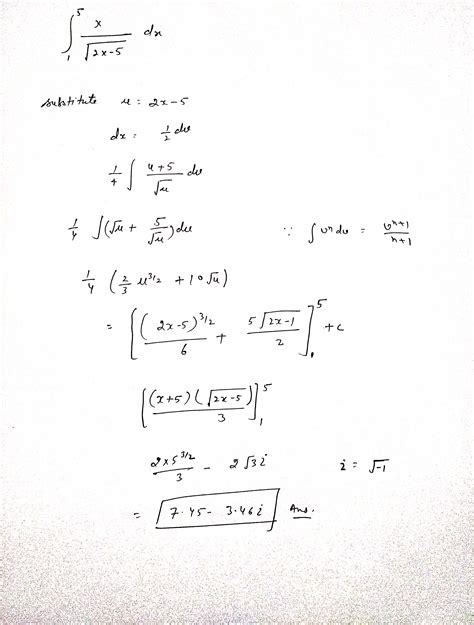 ∫₁⁵ x/√(2x-5) dx
substitute u = 2x-5
dx = 1/2 du
1/4 ∫ (u+5)/√u du
1/4 ∫(√u + 5/√u) du ∵ ∫uⁿ du = uⁿ⁺¹/(n+1)
1/4 (2/3 u^(3/2) + 10√u)
= [(2x-5)^(3/2)/6 + 5√(2x-1)/2]₁⁵ + c
[(x+5)(√(2x-5))/3]₁⁵
2×5^(3/2)/3 - 2√3i i = √-1
= 7.45 - 3.46i Ans.